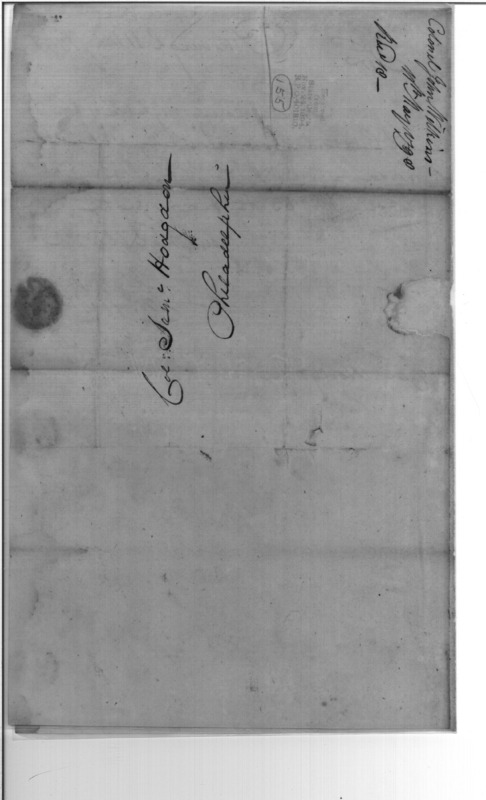 Colonel John Wilkins -
May 1790
No 10 -
155
Col: Sam: Hodgdon
Philadelphia